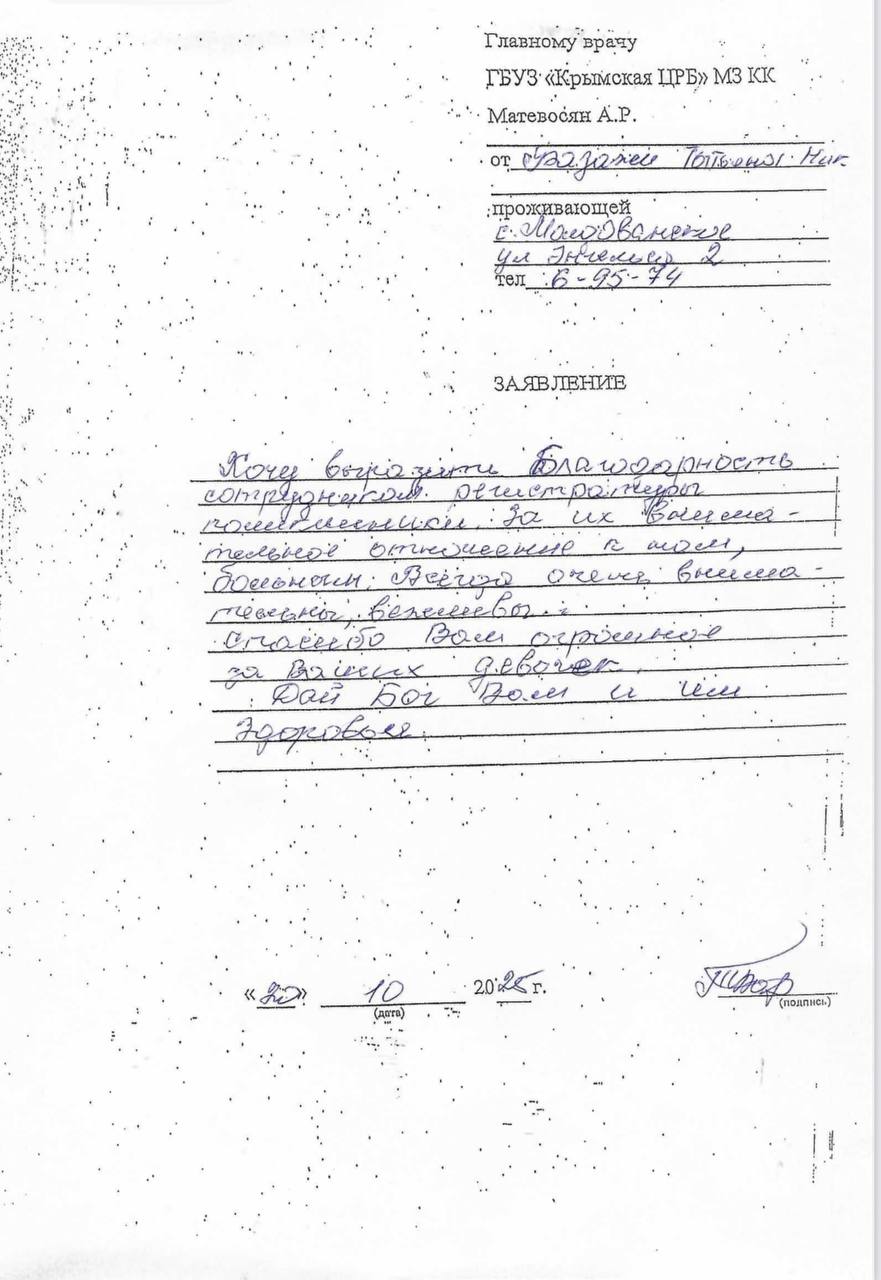 Главному врачу
ГБУЗ «Крымская ЦРБ» МЗ КК
Матевосян А.Р.
от Татьяна Ник
проживающей
с. Молдованское
ул Энгельса 2
тел 6-95-74
ЗАЯВЛЕНИЕ
Хочу выразить Благодарность
сотрудникам регистратуры
поликлиники. За их внима-
тельное отношение к нам,
больным. Всегда очень внима-
тельны, вежливы.
Спасибо Вам огромное
за Ваших девочек.
Дай Бог Вам и им
Здоровья.
« » 10 2025 г.
(дата)
(подпись)